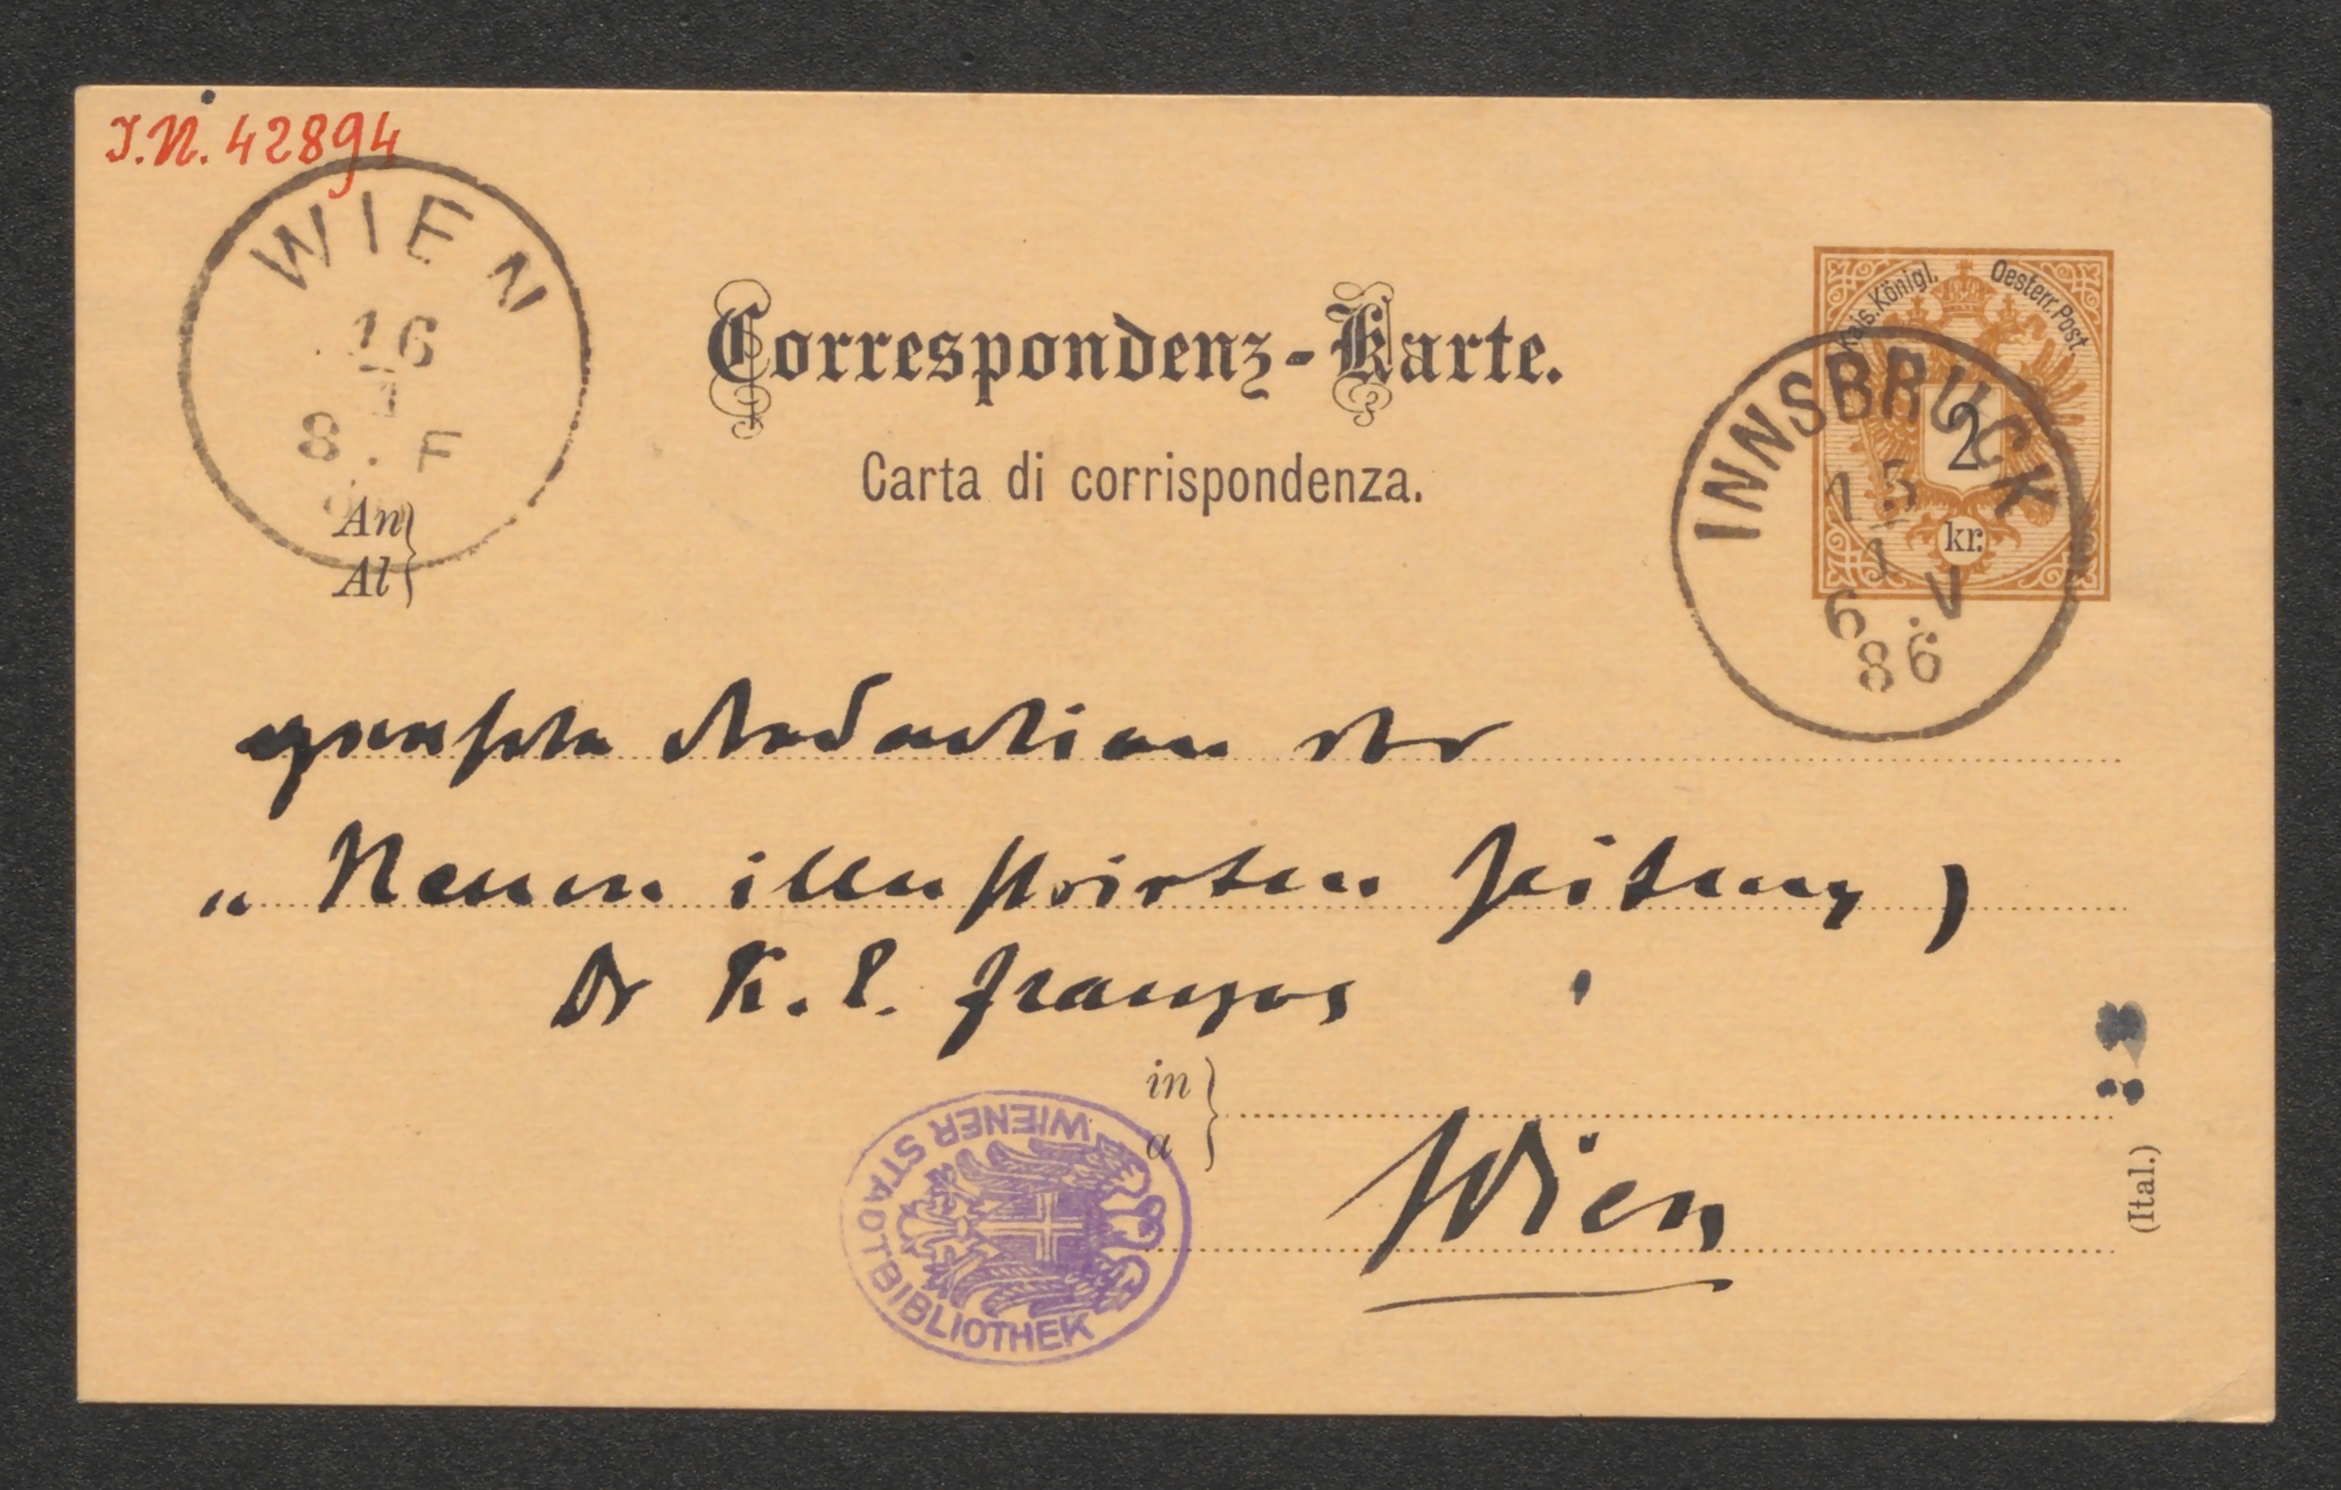 J.N. 42894
WIEN
16
1
8. F
Correspondenz-Karte.
Carta di corrispondenza.
Kais. Königl. Oesterr. Post.
2
kr.
INNSBRUCK
15
1
6. V
86
An
Al
Redaction der
„Neuen illustrirten Zeitung,
Dr K. E. Franzos
in
a
Wien
WIENER STADTBIBLIOTHEK
(Ital.)